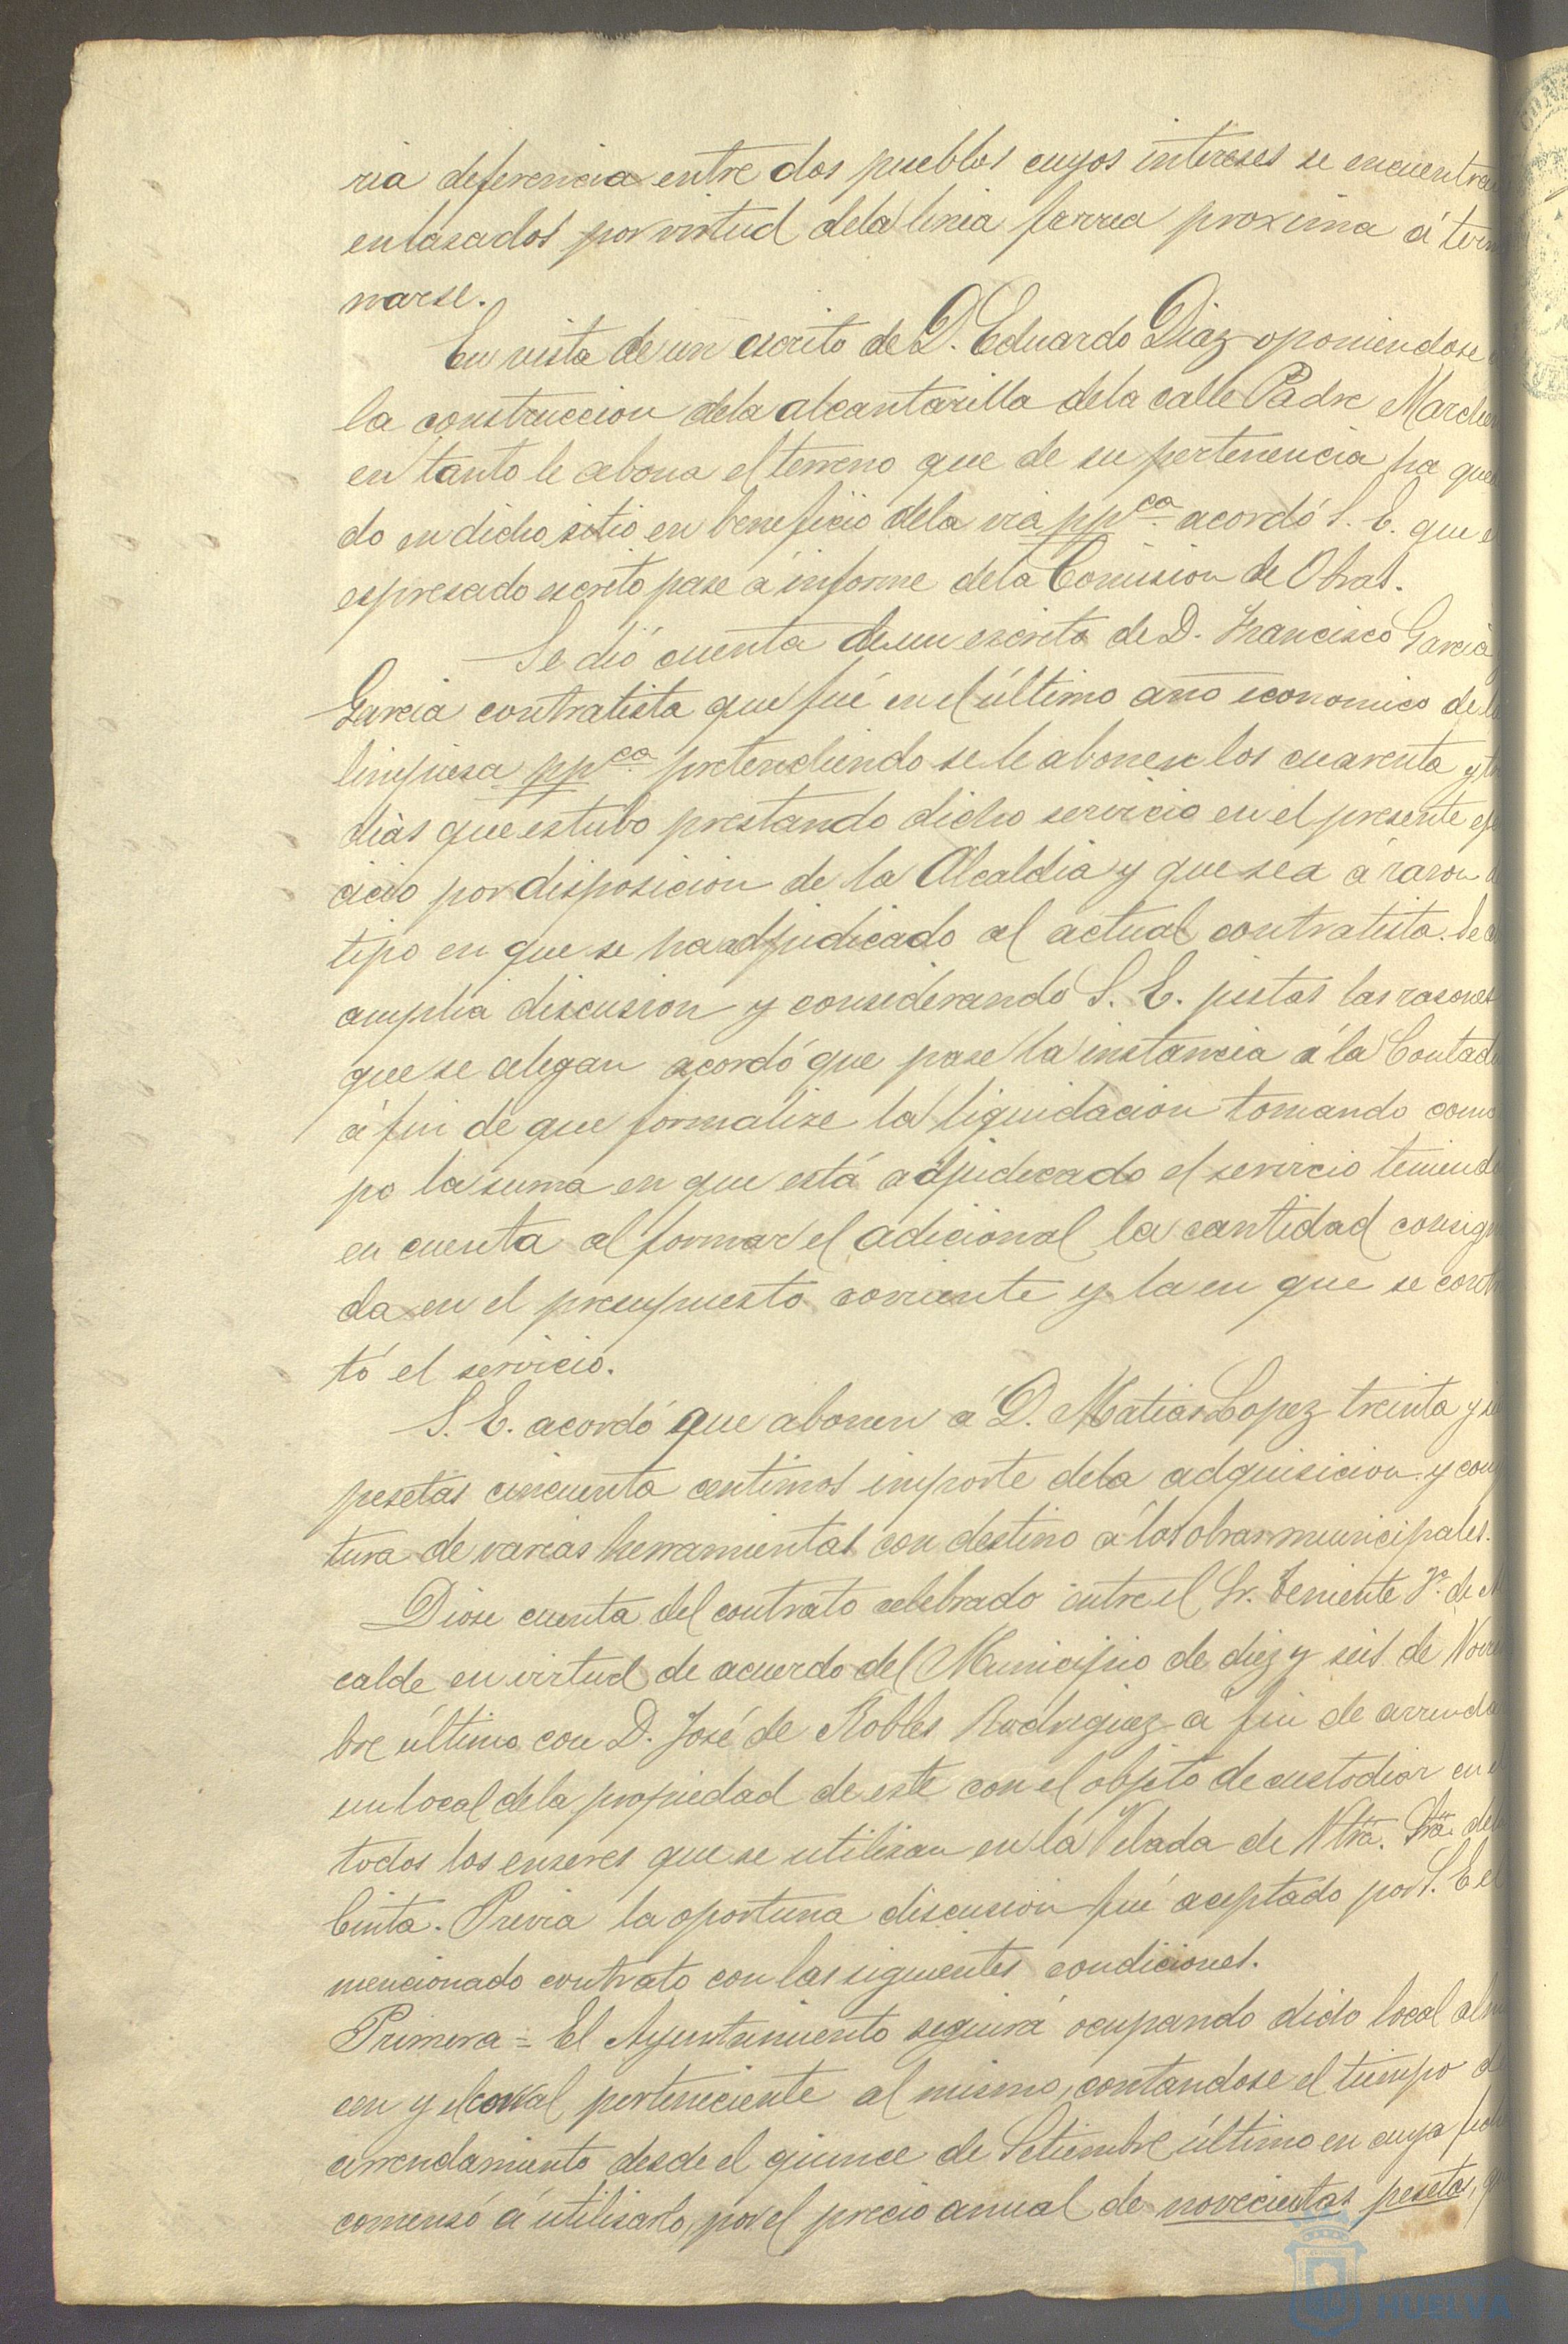 ria deferencia entre dos pueblos cuyos intereses se encuentra
enlasados por virtud dela linia ferrea proxima á ter
narse.
En vista de un escrito de D. Eduardo Diaz oponiendose
la construccion dela alcantarilla dela calle Padre Marche
en tanto le abona el terreno que de su pertenencia ha que
do en dicho sitio en beneficio dela via ppca. acordó S. E. que e
espresado escrito pase á informe dela Comision de Obras.
Se dió cuenta de un escrito de D. Francisco Garcia
Garcia contratista que fué en el último año economico de l
limpiesa ppca. pretendiendo se le abonen los cuarenta y t
dias que estubo prestando dicho servicio en el presente eje
cicio por disposicion de la Alcaldia y que sea á rason
tipo en que se ha adjudicado al actual contratista. De
amplia discusion y considerando S. E. justas las rasones
que se alegan acordó que pase la instancia á la Contad
á fin de que formalise la liquidacion tomando como
po la suma en que está adjudicado el servicio teniend
en cuenta al formar el adicional la cantidad consig
da en el presupuesto corriente y la en que se cont
tó el servicio.
S. E. acordó que abonen á D. Matias Lopez treinta y
pesetas cincuenta centimos importe dela adquisicion y com
tura de varias herramientas con destino á las obras municipales.
Diose cuenta del contrato celebrado entre el Sr. Teniente de
calde en virtud de acuerdo del Municipio de diez y seis de Novi
bre último con D. José de Robles Rodriguez á fin de arrenda
un local dela propiedad de este con el objeto de custodiar en
todos los enseres que se utilisan en la Velada de Ntra. Sra. de
Cinta. Previa la oportuna discusion fué aceptado por S. E. el
mencionado contrato con las siguientes condiciones.
Primera = El Ayuntamiento seguirá ocupando dicho local al
cen y el corral perteneciente al mismo, contandose el tiempo d
arrendamiento desde el quince de Setiembre último en cuya fech
comensó á utilisarlo, por el precio anual de novecientas pesetas, q
HUELVA